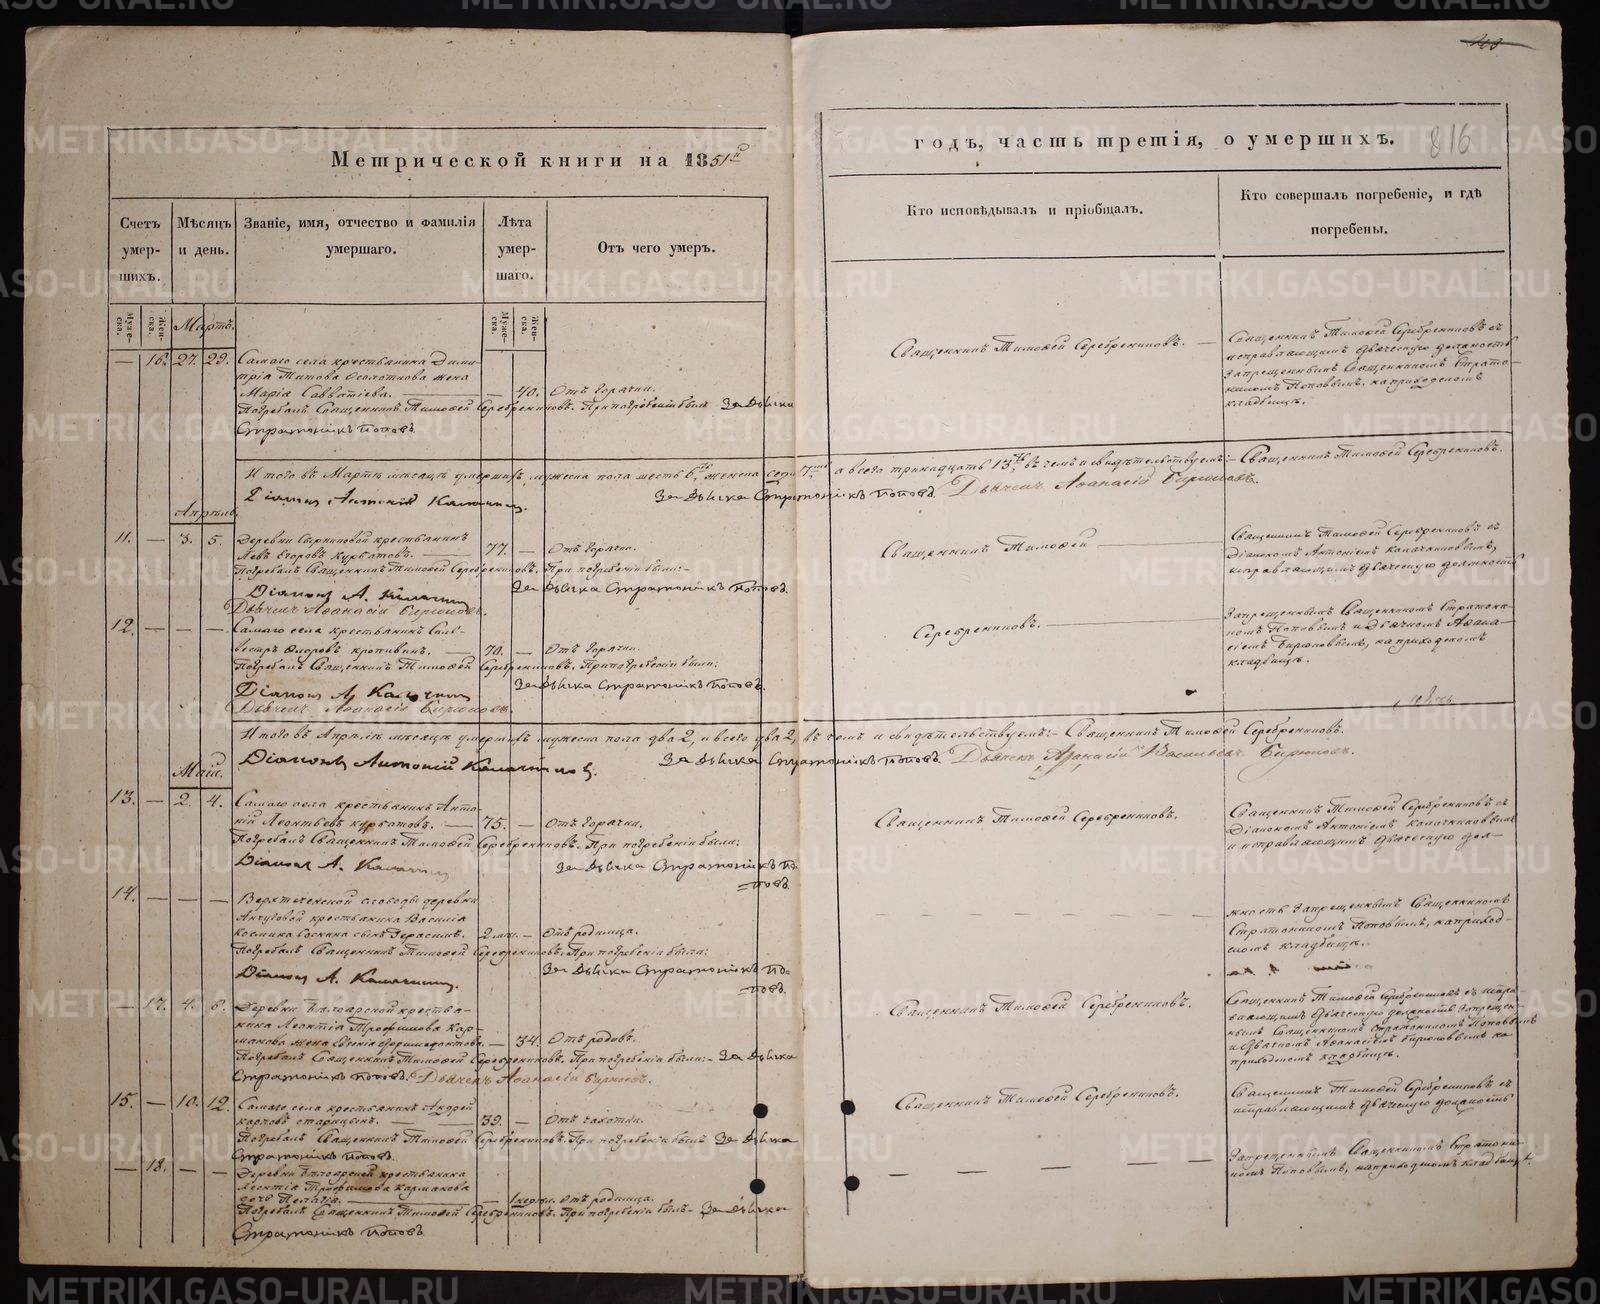 Метрической книги на 1851й
годъ, часть третія, о умершихъ.
816
Счетъ умер-шихъ.
Мѣсяцъ и день.
Званіе, имя, отчество и фамилія умершаго.
Лѣта умер-шаго.
Отъ чего умеръ.
Кто исповѣдывалъ и пріобщалъ.
Кто совершалъ погребеніе, и гдѣ погребены.
Муже-ска.
Жен-ска.
Муже-ска.
Жен-ска.
Мартъ.
— 16. 27. 29. Самаго села крестьянина Дими-
трія Титова жена
Марія Савватіева. — 40. Отъ горячки.
Погребалъ Священникъ Тимофей Серебрениковъ. При погребеніи былъ За Дьячка
Стратоникъ Поповъ.
Священникъ Тимофей Серебрениковъ. —
Священникъ Тимофей Серебрениковъ съ
исправляющимъ дьяческую должность
Запрещеннымъ Священникомъ Страто-
никомъ Поповымъ, на приходскомъ
кладбищѣ.
Итого въ Мартѣ мѣсяцѣ умершихъ мужеска пола шесть 6, женска седмь 7, а всего тринадцать 13, въ чемъ и свидѣтельствуемъ:- Священникъ Тимофей Серебрениковъ.
Діаконъ Антоній За Дьячка Стратоникъ Поповъ. Дьячекъ Афанасій Бирюковъ.
Апрѣль.
11. — 3. 5. Деревни крестьянинъ
Левъ Егоровъ Курбатовъ. — 77. — Отъ горячки.
Погребалъ Священникъ Тимофей Серебрениковъ. При погребеніи были:-
Діаконъ А. За Дьячка Стратоникъ Поповъ.
Дьячекъ Афанасій Бирюковъ.
Священникъ Тимофей —
Священникъ Тимофей Серебрениковъ съ
Діакономъ Антоніемъ
исправляющимъ дьяческую должность
12. — — — Самаго села крестьянинъ Силь-
вестръ Кропивинъ. — 70. — Отъ горячки.
Погребалъ Священникъ Тимофей Серебрениковъ. При погребеніи были:
Діаконъ А. За Дьячка Стратоникъ Поповъ.
Дьячекъ Афанасій Бирюковъ.
Серебрениковъ. —
Запрещеннымъ Священникомъ Стратони-
комъ Поповымъ и Дьячкомъ Афана-
сіемъ Бирюковымъ, на приходскомъ
кладбищѣ.
Итого въ Апрѣлѣ мѣсяцѣ умершихъ мужеска пола два 2, и всего два 2, въ чемъ и свидѣтельствуемъ:- Священникъ Тимофей Серебрениковъ.
Діаконъ Антоній За Дьячка Стратоникъ Поповъ. Дьячекъ Афанасій Васильевъ Бирюковъ.
Май.
13. — 2. 4. Самаго села крестьянинъ Анто-
ній Леонтьевъ Курбатовъ. — 75. — Отъ горячки.
Погребалъ Священникъ Тимофей Серебрениковъ. При погребеніи были:
Діаконъ А. За Дьячка Стратоникъ По-
=повъ.
Священникъ Тимофей Серебрениковъ.
Священникъ Тимофей Серебрениковъ съ
Діакономъ Антоніемъ
и исправляющимъ дьяческую дол-
14. — — — Верхтеченской слободы деревни
Анчуговой крестьянина Василія
Космина сынъ Герасимъ. 2 мѣс. — Отъ родимца.
Погребалъ Священникъ Тимофей Серебрениковъ. При погребеніи были:
Діаконъ А. За Дьячка Стратоникъ По-
=повъ.
жность Запрещеннымъ Священникомъ
Стратоникомъ Поповымъ, на приход-
скомъ кладбищѣ.
— 17. 4. 6. Деревни крестья-
нина Леонтія Трофимова Кар-
макова жена Евгенія — 34. Отъ родовъ.
Погребалъ Священникъ Тимофей Серебрениковъ. При погребеніи были:- За Дьячка
Стратоникъ Поповъ. Дьячекъ Афанасій Бирюковъ.
Священникъ Тимофей Серебрениковъ.
Священникъ Тимофей Серебрениковъ съ испра-
вляющимъ дьяческую должность Запрещен-
нымъ Священникомъ Стратоникомъ Поповымъ
и Дьячкомъ Афанасіемъ Бирюковымъ на
приходскомъ кладбищѣ.
15. — 10. 12. Самаго села крестьянинъ Андрей
Карповъ Старицынъ. — 39. — Отъ чахотки.
Погребалъ Священникъ Тимофей Серебрениковъ. При погребеніи былъ За Дьячка
Стратоникъ Поповъ.
Священникъ Тимофей Серебрениковъ.
Священникъ Тимофей Серебрениковъ съ
исправляющимъ дьяческую должность
— 18. — — Деревни крестьянина
Леонтія Трофимова Кармакова
дочь Пелагія. — 1 недѣли. Отъ родимца.
Погребалъ Священникъ Тимофей Серебрениковъ. При погребеніи былъ- За Дьячка
Стратоникъ Поповъ
Запрещеннымъ Священникомъ Стратони-
комъ Поповымъ, на приходскомъ кладбищѣ.
METRIKI.GASO-URAL.RU